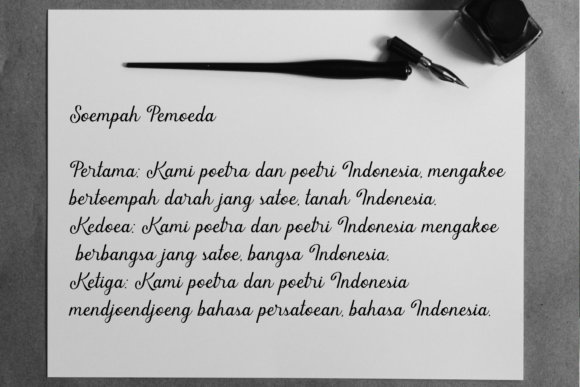 Soempah Pemoeda
Pertama: Kami poetra dan poetri Indonesia, mengakoe
bertoempah darah jang satoe, tanah Indonesia.
Kedoea: Kami poetra dan poetri Indonesia mengakoe
berbangsa jang satoe, bangsa Indonesia.
Ketiga: Kami poetra dan poetri Indonesia
mendjoendjoeng bahasa persatoean, bahasa Indonesia.